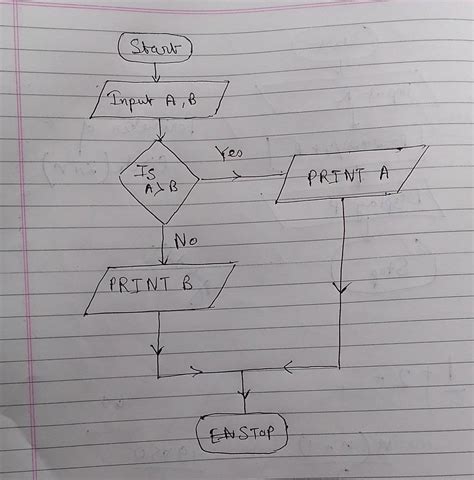 Start
Input A, B
Is
A>B
Yes
PRINT A
No
PRINT B
STOP